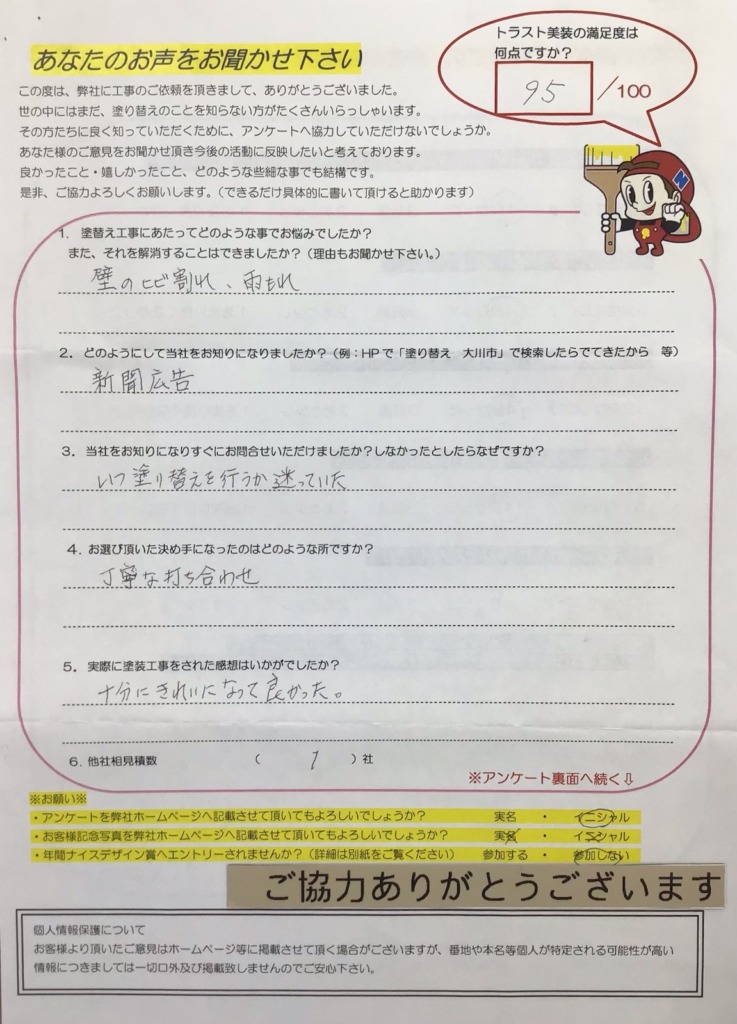 トラスト美装の満足度は
何点ですか?
95 /100
あなたのお声をお聞かせ下さい
この度は、弊社に工事のご依頼を頂きまして、ありがとうございました。
世の中にはまだ、塗り替えのことを知らない方がたくさんいらっしゃいます。
その方たちに良く知っていただくために、アンケートへ協力していただけないでしょうか。
あなた様のご意見をお聞かせ頂き今後の活動に反映したいと考えております。
良かったこと・嬉しかったこと、どのような些細な事でも結構です。
是非、ご協力よろしくお願いします。(できるだけ具体的に書いて頂けると助かります)
1. 塗替え工事にあたってどのような事でお悩みでしたか?
また、それを解消することはできましたか?(理由もお聞かせ下さい。)
壁のヒビ割れ、雨もれ
2. どのようにして当社をお知りになりましたか?(例:HPで「塗り替え 大川市」で検索したらでてきたから 等)
新聞広告
3. 当社をお知りになりすぐにお問合せいただけましたか?しなかったとしたらなぜですか?
いつ塗り替えを行うか迷っていた
4. お選び頂いた決め手になったのはどのような所ですか?
丁寧な打ち合わせ
5. 実際に塗装工事をされた感想はいかがでしたか?
十分にきれいになって良かった。
6. 他社相見積数 ( 1 )社
※アンケート裏面へ続く⇩
※お願い※
・アンケートを弊社ホームページへ記載させて頂いてもよろしいでしょうか? 実名 ・ イニシャル
・お客様記念写真を弊社ホームページへ記載させて頂いてもよろしいでしょうか? 実名 ・ イニシャル
・年間ナイスデザイン賞へエントリーされませんか?(詳細は別紙をご覧ください) 参加する ・ 参加しない
ご協力ありがとうございます
個人情報保護について
お客様より頂いたご意見はホームページ等に掲載させて頂く場合がございますが、番地や本名等個人が特定される可能性が高い
情報につきましては一切口外及び掲載致しませんのでご安心下さい。